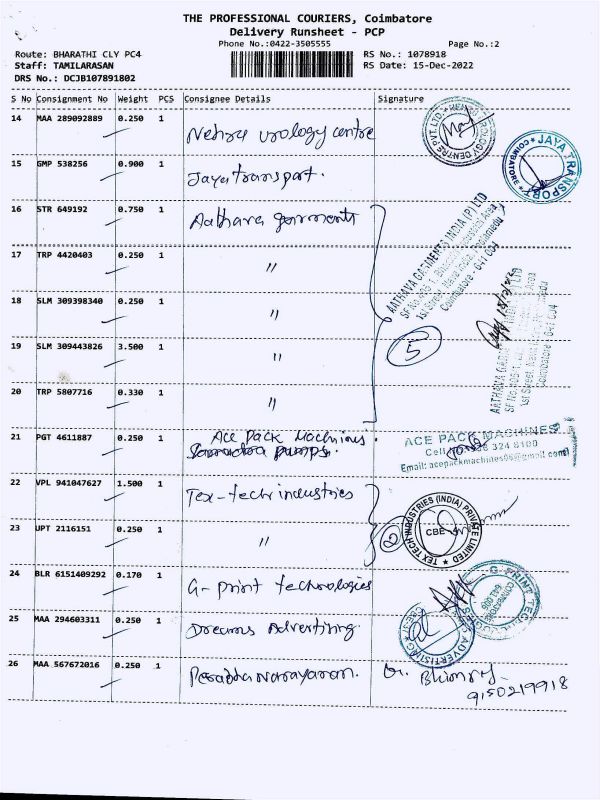 THE PROFESSIONAL COURIERS, Coimbatore
Delivery Runsheet - PCP
Phone No.:0422-3505555 Page No.:2
Route: BHARATHI CLY PC4 RS No.: 1078918
Staff: TAMILARASAN RS Date: 15-Dec-2022
DRS No.: DCJB107891802
S No Consignment No Weight PCS Consignee Details Signature
14 MAA 289092889 0.250 1 Nehru urology centre
15 GMP 538256 0.900 1 Jaya transport.
JAYA TRANSPORT
COIMBATORE
16 STR 649192 0.750 1 Aathava garments
AATHAVA GARMENTS INDIA (P) LTD
Coimbatore - 641 004
17 TRP 4420403 0.250 1 "
18 SLM 309398340 0.250 1 "
19 SLM 309443826 3.500 1 "
5
20 TRP 5807716 0.330 1 "
21 PGT 4611887 0.250 1 Ace Pack Machines.
pumps.
ACE PACK MACHINES
324 8100
Email: acepackmachines06@gmail.com
22 VPL 941047627 1.500 1 Tex-tech industries
TEX TECH INDUSTRIES (INDIA) PRIVATE LIMITED
CBE
2
23 UPT 2116151 0.250 1 "
24 BLR 6151409292 0.170 1 G-print technologies
25 MAA 294603311 0.250 1 Dreams Advertising
26 MAA 567672016 0.250 1
9150219918